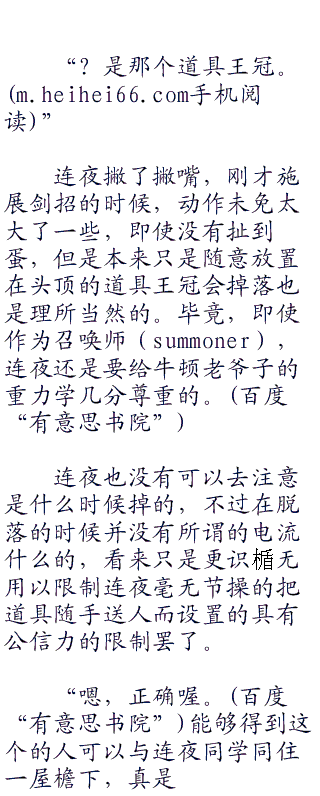 “？是那个道具王冠。
(m.heihei66.com手机阅
读)”
连夜撇了撇嘴，刚才施
展剑招的时候，动作未免太
大了一些，即使没有扯到
蛋，但是本来只是随意放置
在头顶的道具王冠会掉落也
是理所当然的。毕竟，即使
作为召唤师（summoner），
连夜还是要给牛顿老爷子的
重力学几分尊重的。(百度
“有意思书院”)
连夜也没有可以去注意
是什么时候掉的，不过在脱
落的时候并没有所谓的电流
什么的，看来只是更识楯无
用以限制连夜毫无节操的把
道具随手送人而设置的具有
公信力的限制罢了。
“嗯，正确喔。(百度
“有意思书院”)能够得到这
个的人可以与连夜同学同住
一屋檐下，真是